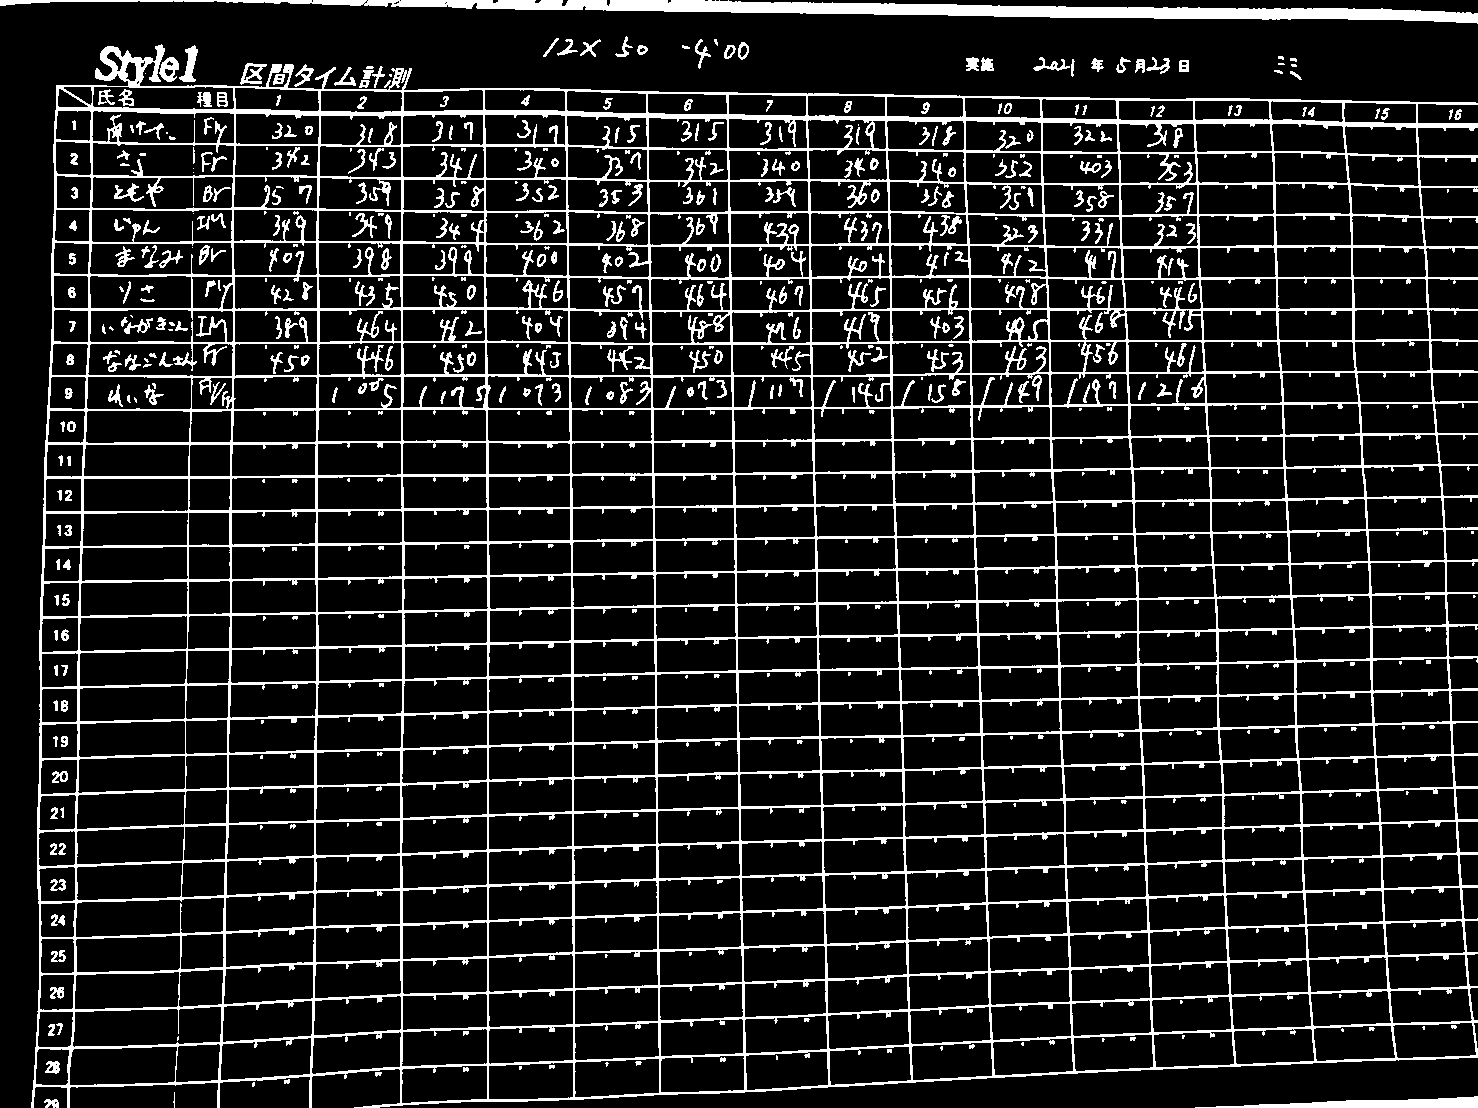 12× 50 -4'00
Style1 区間タイム計測 実施 2021 年 5月23日 ミミ
氏名 種目 1 2 3 4 5 6 7 8 9 10 11 12 13 14 15 16
1 Fly 320 318 317 317 315 315 319 319 318 320 322 318
2 さら Fr 342 343 341 340 337 342 340 340 340 352 403 353
3 ともや Br 357 359 358 352 353 361 359 360 358 359 358 357
4 じゅん IM 349 349 344 362 368 369 439 437 438 323 331 323
5 まなみ Br 407 398 399 400 402 400 404 404 412 412 417 414
6 りさ Fly 428 435 450 446 457 464 467 465 456 478 461 446
7 いながきさん IM 389 464 462 404 394 488 476 419 403 495 468 415
8 ななごんさん Fr 450 446 450 445 442 450 445 452 453 463 456 461
9 れいな Fly/Fr 1'005 1'175 1'073 1'083 1'073 1'117 1'145 1'158 1'149 1'197 1'216
10
11
12
13
14
15
16
17
18
19
20
21
22
23
24
25
26
27
28
29